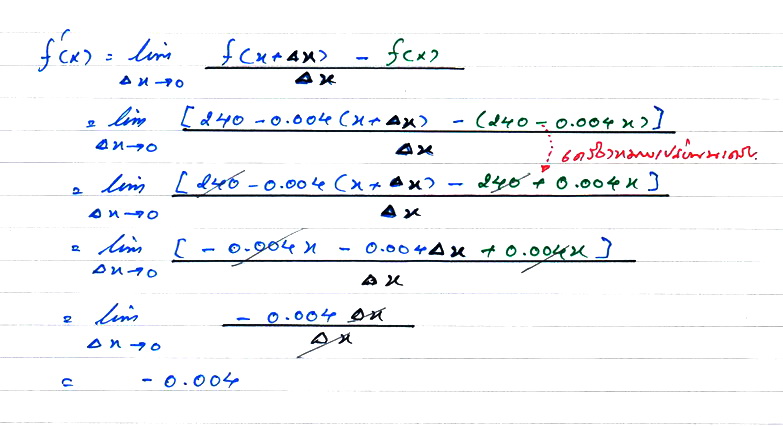 f'(x) = lim Δx→0 f(x+Δx) - f(x) / Δx
= lim Δx→0 [240 - 0.004(x+Δx) - (240 - 0.004x)] / Δx
= lim Δx→0 [240 - 0.004(x+Δx) - 240 + 0.004x] / Δx
= lim Δx→0 [-0.004x - 0.004Δx + 0.004x] / Δx
= lim Δx→0 -0.004Δx / Δx
= -0.004